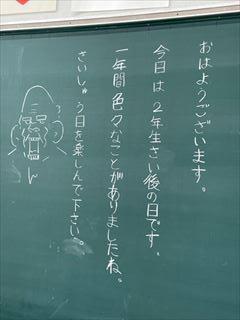 おはようございます。
今日は2年生さい後の日です。
一年間色々なことがありましたね。
さいしゅう日を楽しんで下さい。